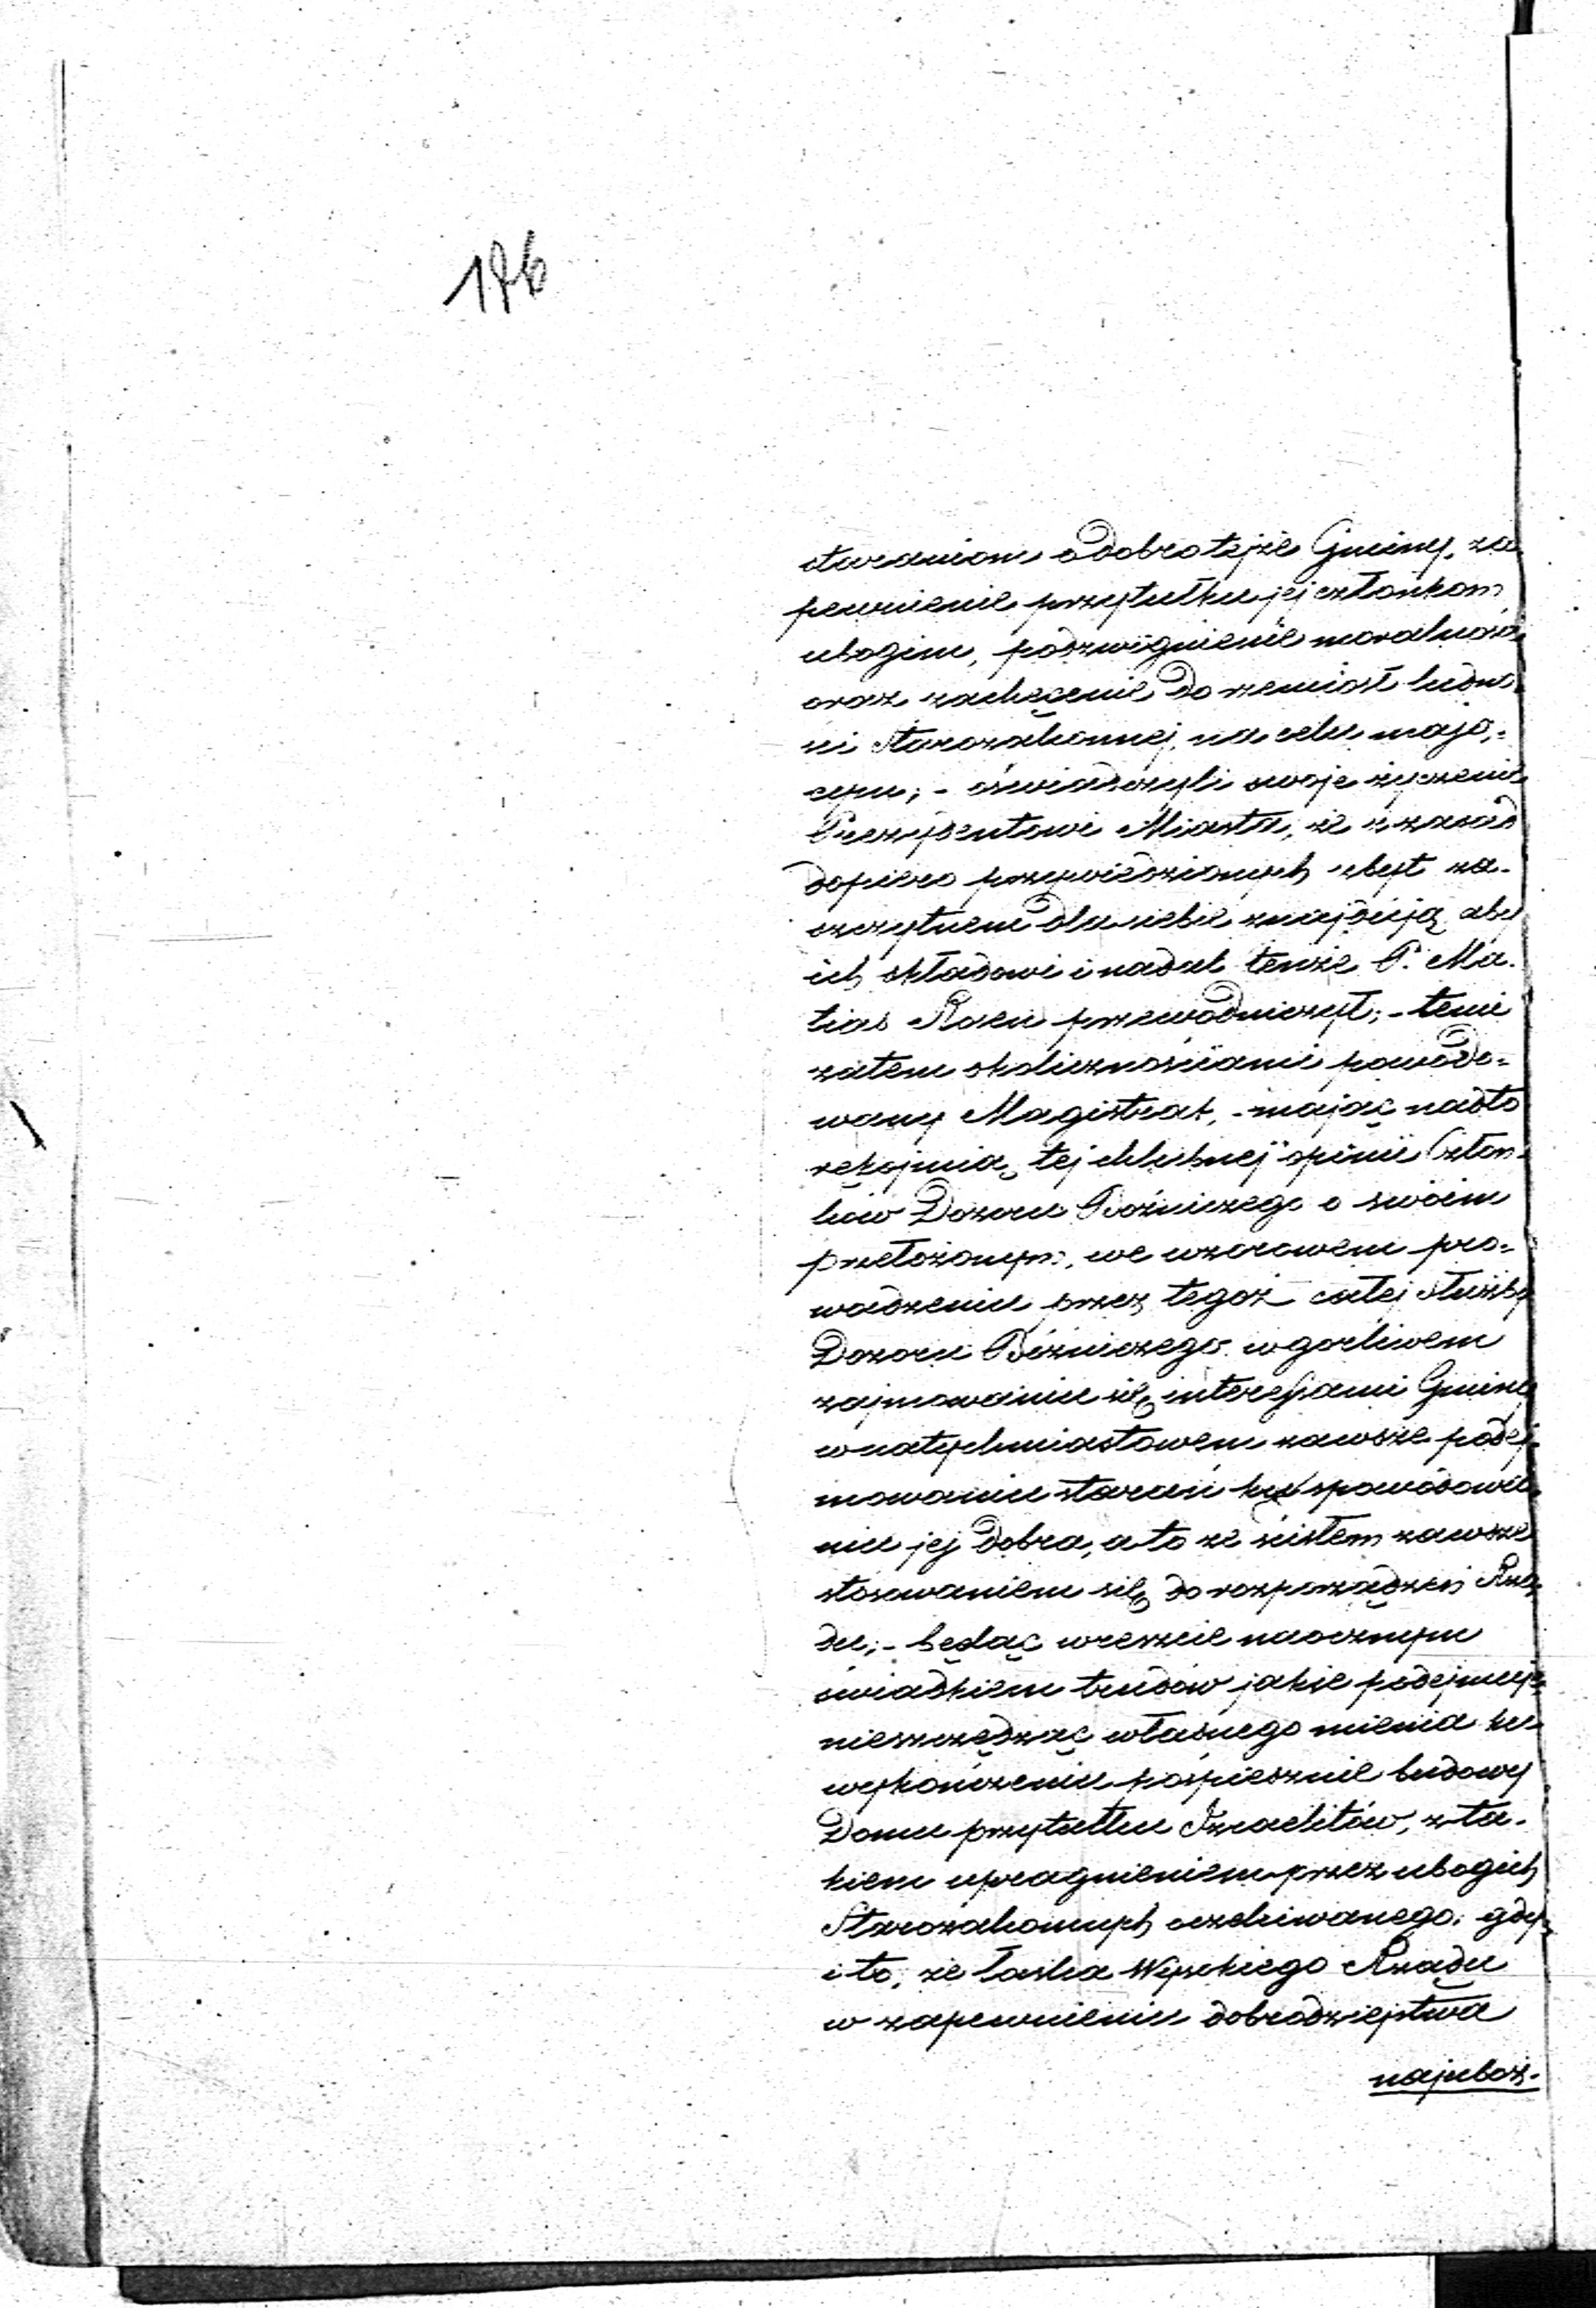 186
staraniom o dobro tejże Gminy, za
pewnienie przytułku jej członkom
ubogim, podzwignienie moralności
oraz zachęcenie do rzemiosł ludno-
ści Starozakonnej, na celu mają,=
cym; - oświadczyli swoje życzenie
Prezydentowi Miasta, że z zasad
dopiero przywiedzionych zbyt za-
szczytnem dla siebie znajdują aby
ich składowi i nadal tenże P. Ma-
tias Rosen przewodniczył; - temi
zatem okolicznościami powodo=
wany Magistrat, - mając nadto
rękojmią tej chlubnej opinii Człon-
ków Dozoru Bożniczego o swoim
przełożonym, we wzorowem pro=
wadzeniu przez tegoż całej służby
Dozoru Bożniczego w gorliwem
zajmowaniu się interessami Gminy
w natychmiastowem zawsze podej-
mowaniu starań ku spowodowa-
niu jej dobra, a to ze ścisłem zawsze
stosowaniem się do rozporządzeń Rzą-
du; - będąc wreszcie naocznym
świadkiem trudów jakie podejmuje
nieszczędząc własnego mienia ku
wykończeniu pośpiesznie budowy
Domu przytułku Izraelitów, z ta-
kiem upragnieniem przez ubogich
Starozakonnych oczekiwanego; gdy
i to, że łaska Wysokiego Rządu
w zapewnieniu dobrodziejstwa
najuboż-